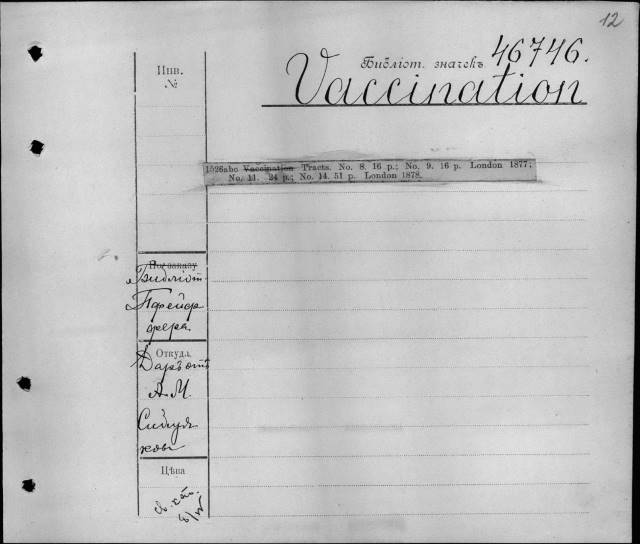 12
46746.
Библіот. значекъ
Vaccination
Инв.
№
1526abc Vaccination Tracts. No. 8. 16 p.; No. 9. 16 p. London 1877;
No. 11. 24 p.; No. 14. 51 p. London 1878.
По заказу
Библіот.
Пфейф
фера.
Откуда.
Даръ отъ
А. М.
Сибиря
кова
Цѣна